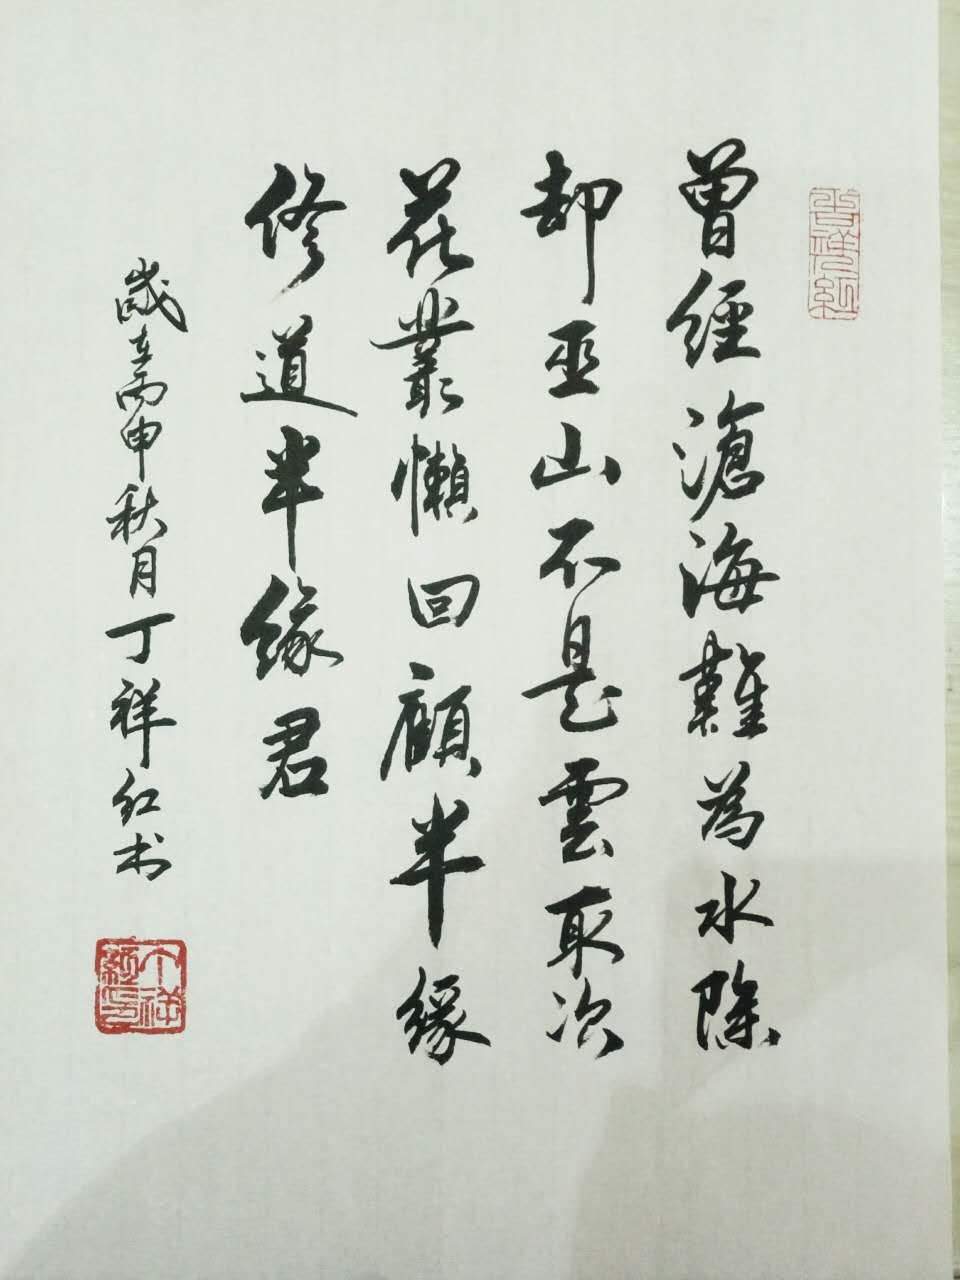 曾經滄海難為水除
却巫山不是雲取次
花叢懶回顧半緣
修道半緣君
歲在丙申秋月丁祥红书
丁祥紅印